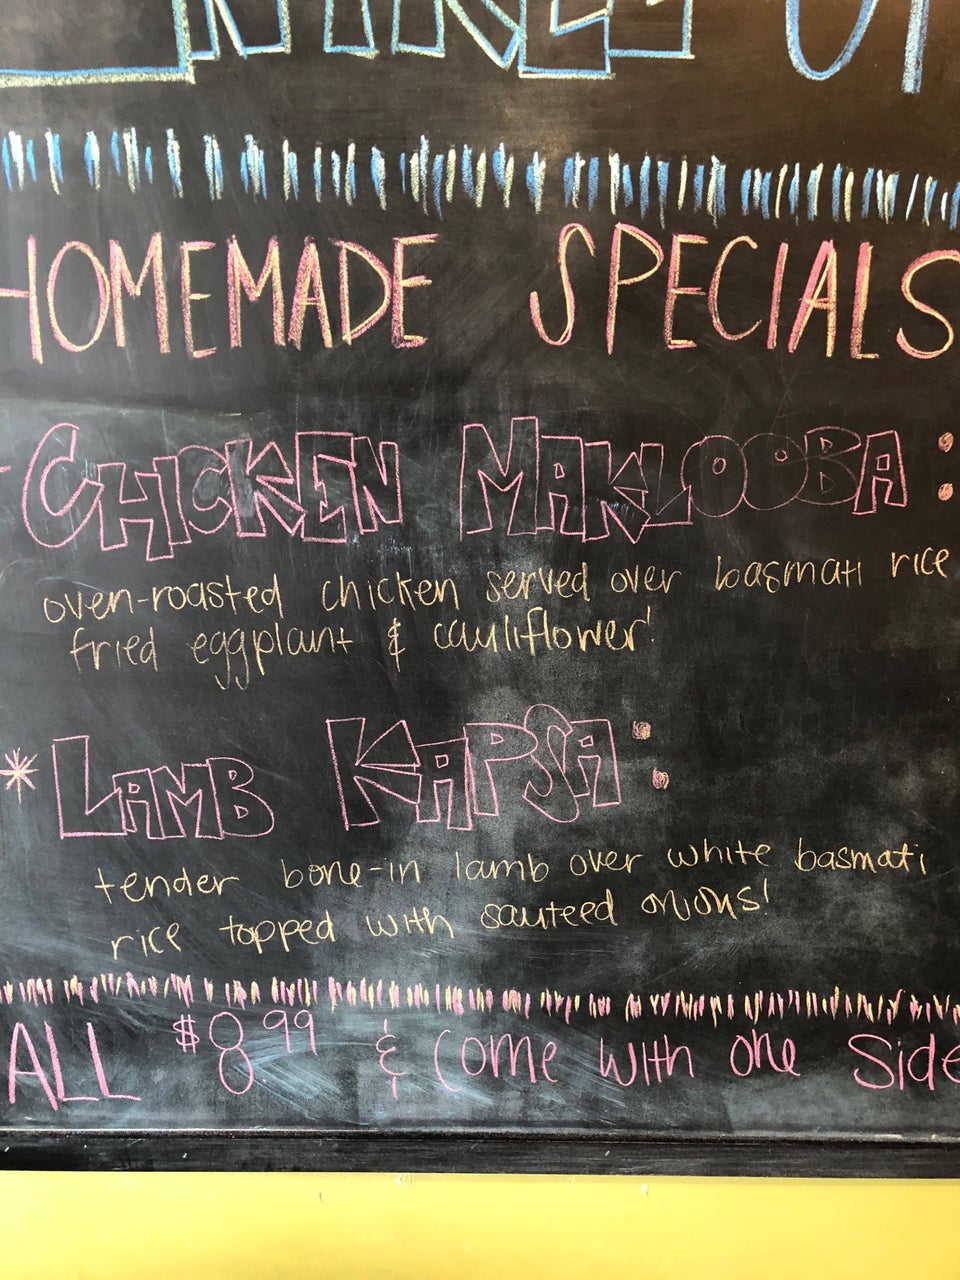 HOMEMADE SPECIALS
- CHICKEN MAKLOOBA:
oven-roasted chicken served over basmati rice
fried eggplant & cauliflower!
* LAMB KAPSA:
tender bone-in lamb over white basmati
rice topped with sauteed onions!
ALL $8.99 & come with one side